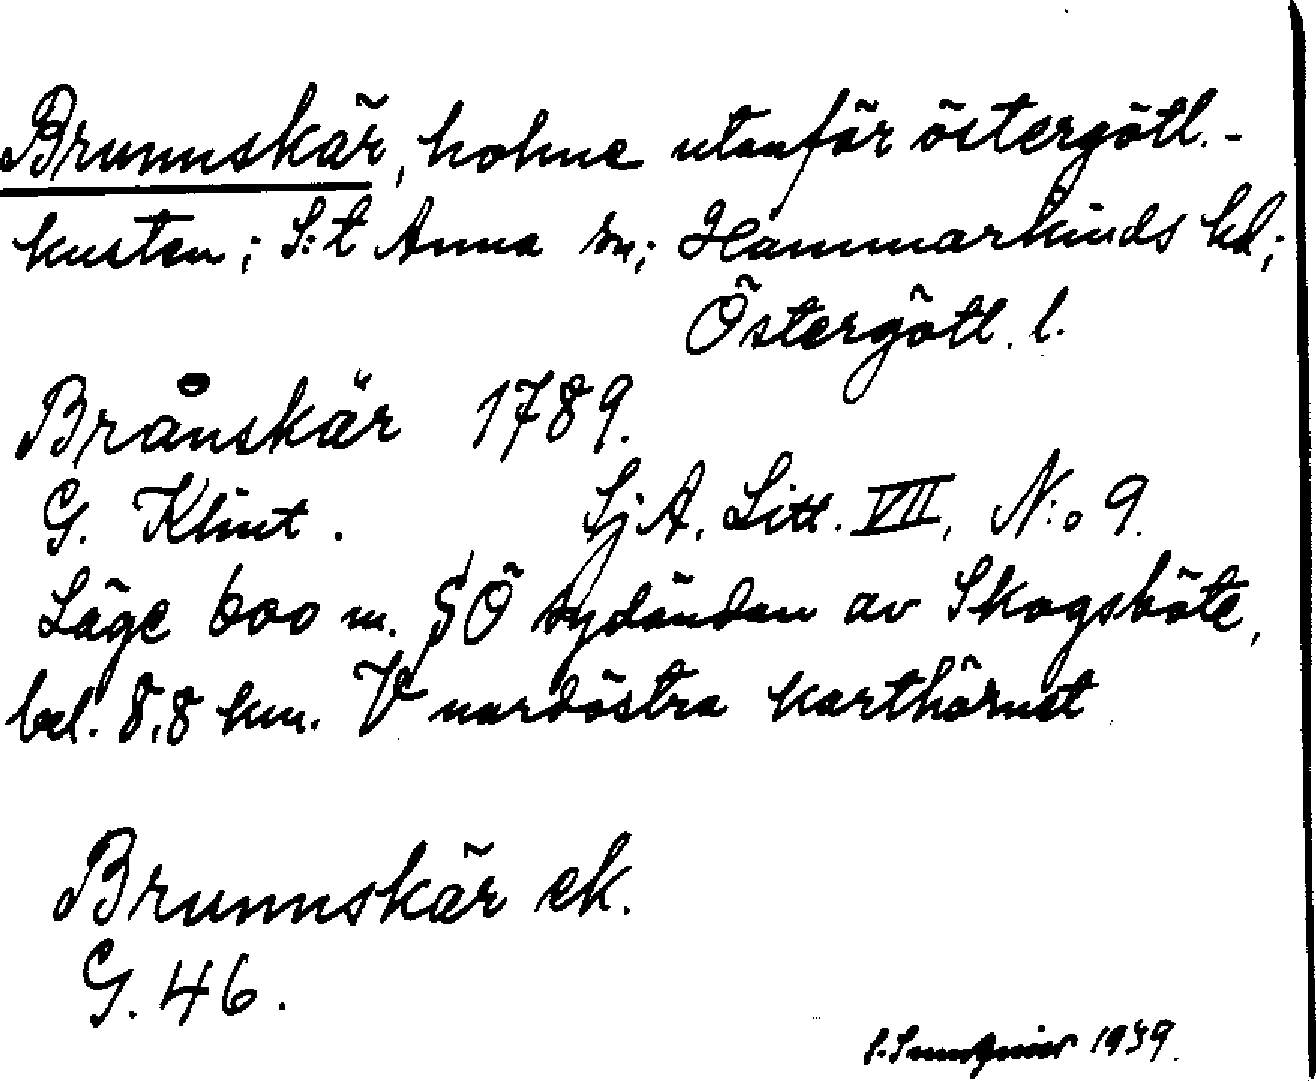 Brunnskär, holme utanför östergötl.-
kusten; S:t Anna sn; Hammarkinds hd;
Östergötl. l.
Brånskär 1789.
G. Klint. SjA. Litt. VII, N:o 9.
Läge 600 m. SÖ sydändan av Skogsböte,
bel. 8,8 km. V nordöstra karthörnet
Brunnskär ek.
G. 46.
1939.